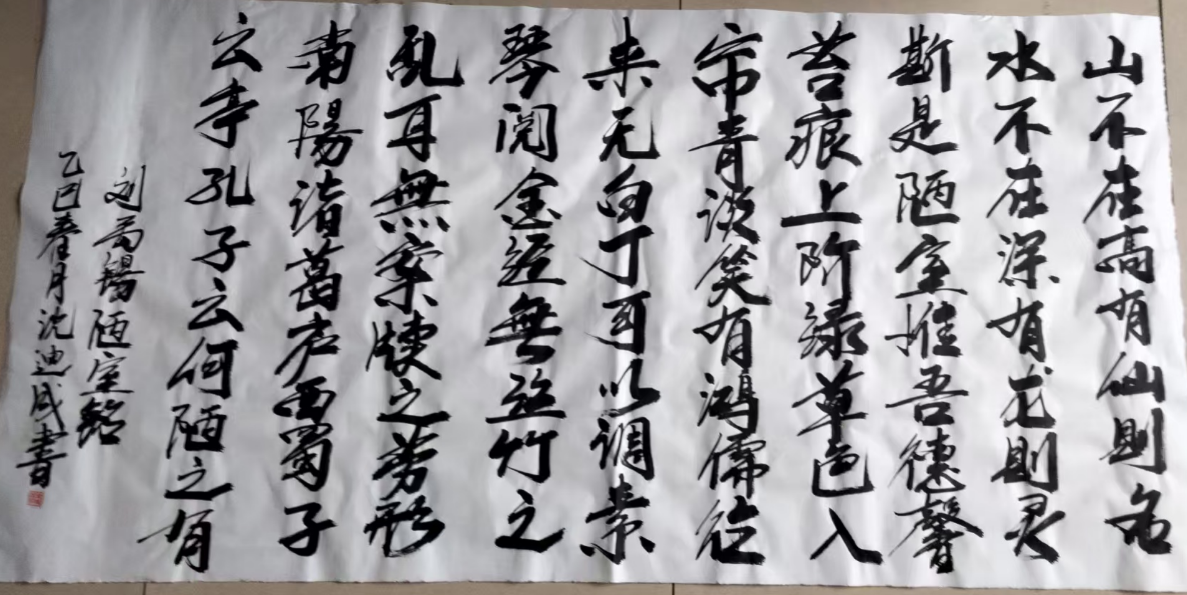 山不在高有仙则名
水不在深有龙则灵
斯是陋室惟吾德馨
苔痕上阶绿草色入
帘青谈笑有鸿儒往
来无白丁可以调素
琴阅金经無丝竹之
乱耳無案牍之劳形
南陽诸葛庐西蜀子
云亭孔子云何陋之有
刘禹锡陋室铭
乙巳春月沈迪成書